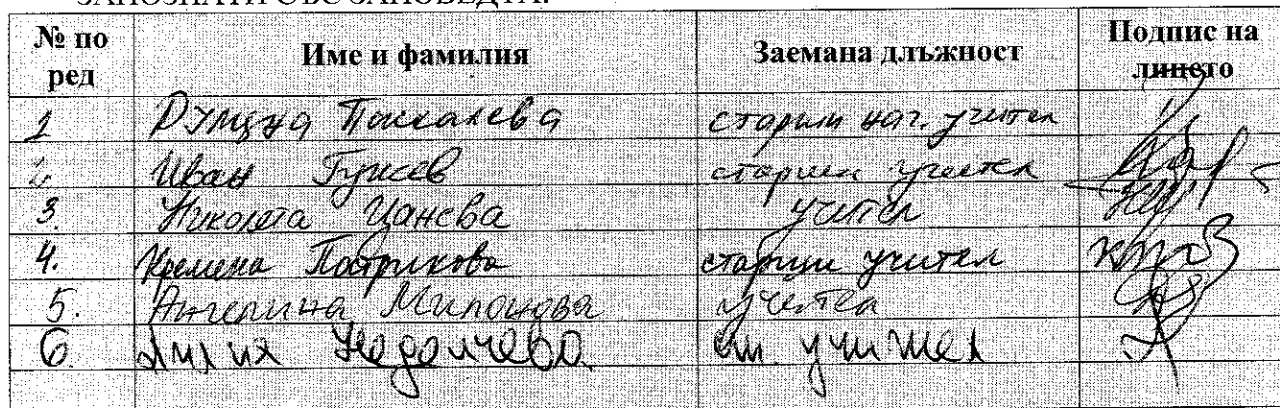 ЗАПОЗНАТИ СЪС ЗАПОВЕДТА:
№ по ред Име и фамилия Заемана длъжност Подпис на лицето
1 Румяна Паскалева старши нач. учител
2 Иван старши учител
3. Николета Цанева учител
4. Кремена Патрикова старши учител
5. Ангелина Миланова учител
6. Лилия Неделчева ст. учител